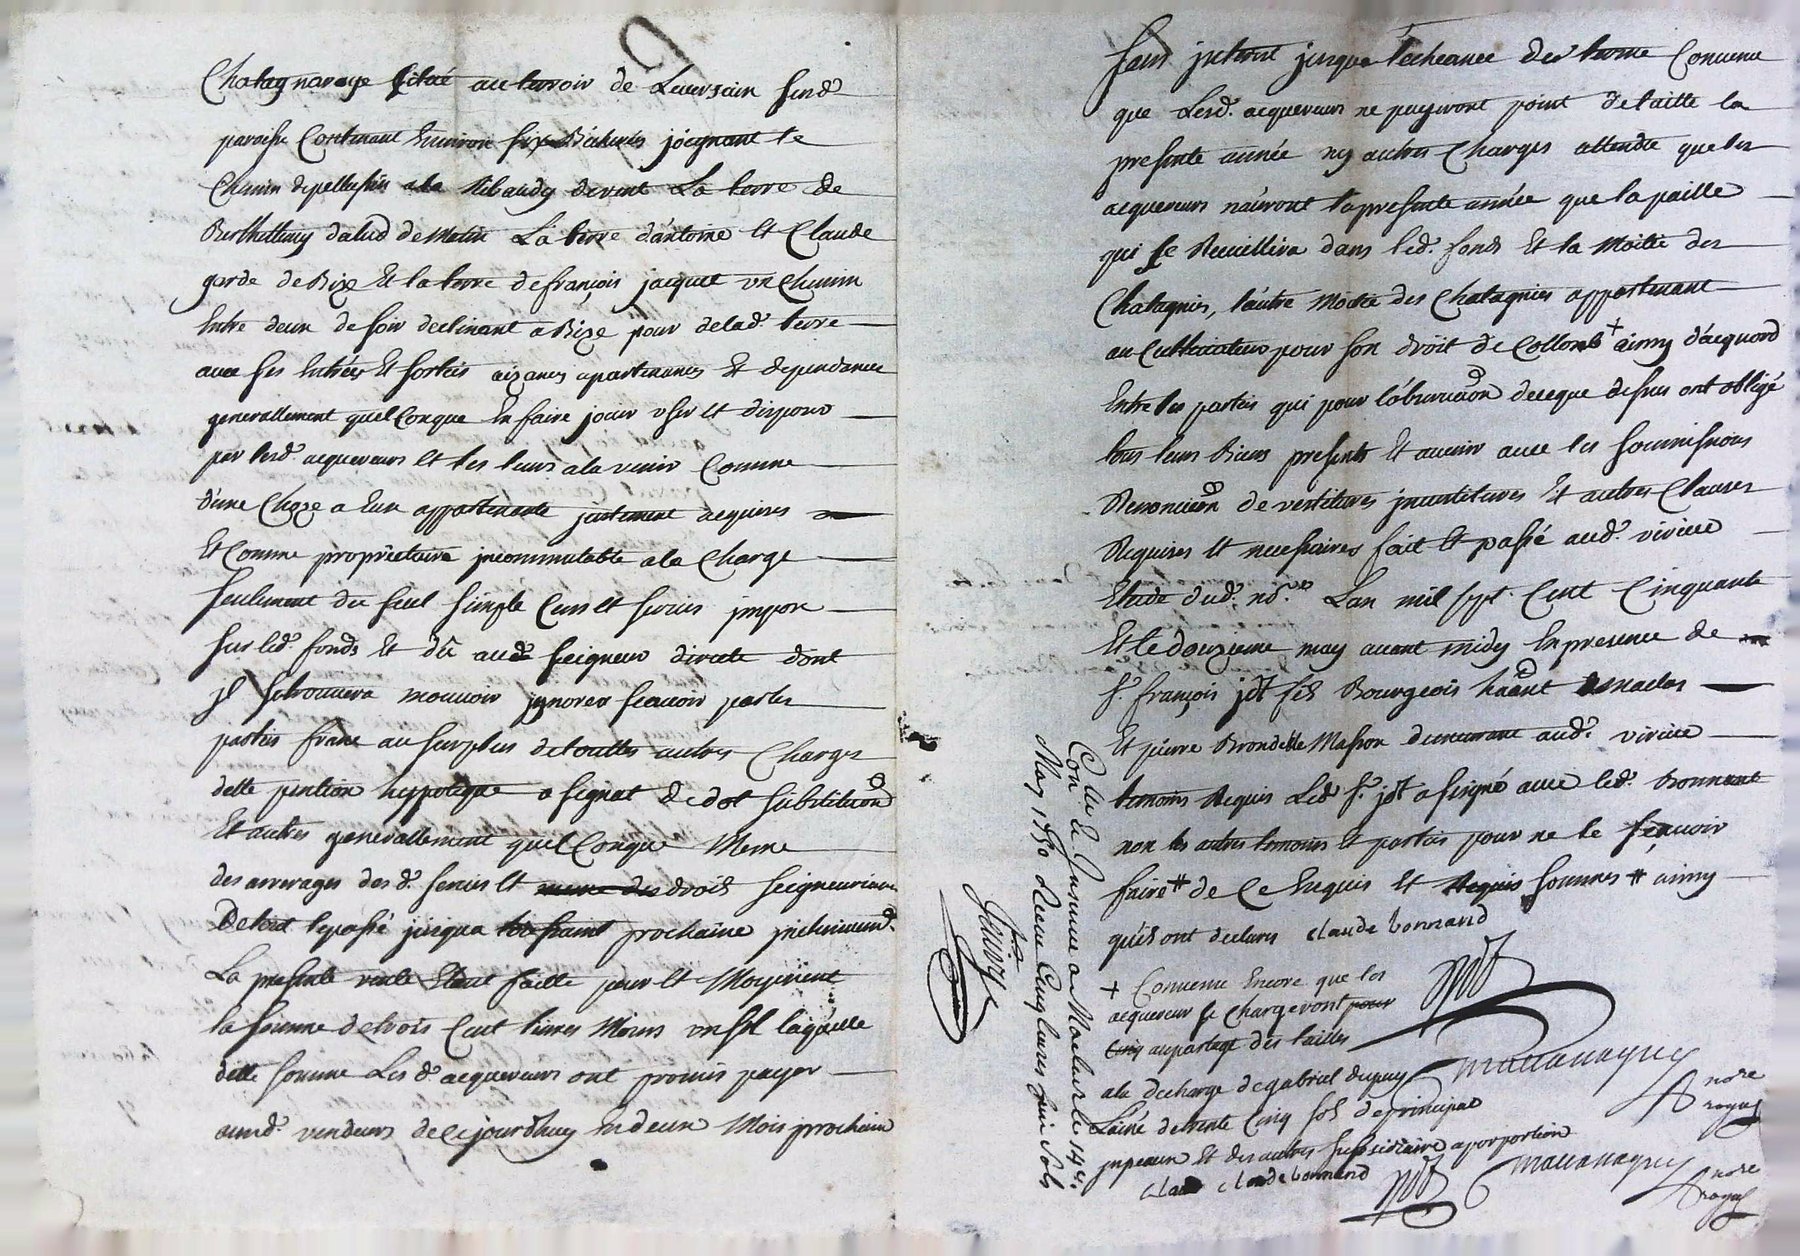 Chatagneraye situé au terroir de Leversain susd.
paroisse Contenant Environ six Bicherées joignant le
Chemin de a la Ribaudy de vent La terre de
Berthellemy dalud de Matin La terre d'antoine et Claude
garde de Bize Et la terre de françois jacquet un Chemin
Entre deux de soir declinant a Bize pour de lad. terre
avec ses Entrées Et sorties aizances apartenances Et dependances
generallement quelConque En faire jouir user Et disposer
par lesd. acquereurs Et les leurs a lavenir Comme
d'une Choze a Eux appartenante justement acquises
Et Comme proprietaire jncommutable a la Charge
seulement du seul simple Cens Et servis jmpose
sur led. fonds Et dû aud. seigneur directe dont
jl se trouvera mouvoir jgnorer scavoir par les
parties franc au surplus de touttes autres Charges
dette pention hypoteque assignat de dot substitution
Et autres generallement quelConque Meme
des arrerages desd. servis Et droits seigneuriaux
De tout le passé jusqua toussaint prochaine jnclusivement.
La presente vente Etant faitte pour Et Moyenent
la somme de trois Cent livres Moins un sol laquelle
ditte somme Lesd. acquereurs ont promis payer
auxd. vendeurs de ce jourdhuy En deux Mois prochain
sans jnterest jusqua l'echeance des terme Convenu
que Lesd. acquereurs ne payeront point de taille la
presente année ny autres Charges attendu que les
acquereurs n'auront la presente année que la paille
qui se Recueillira dans led. fonds Et la Moitié des
Chatagnies, l'autre Moitié des Chatagnies appartenant
au Cultivateur pour son droit de Collons + ainsy d'acquord
Entre les parties qui pour l'observation de ce que dessus ont obligé
tous leurs Biens presents Et avenir avec les soumissions
Renonciation de vestitures jnvestitures Et autres Clauses
Requises Et necessaires fait Et passé aud. virieu
Etude dud. nore. Lan mil sept Cent Cinquante
Et le douzieme may avant midy En presence de
sr. françois jdt fils Bourgeois habitant
Et pierre Brondelle Masson demeurant aud. virieu
temoins Requis Led. sr. jdt a signé avec led. bonnant
non les autres temoins Et parties pour ne le scavoir
faire # de Ce Enquis Et sommes # ainsy
quils ont declares claude bonnand
+ Convenu Encore que les
acquereur se Chargeront
au partage des tailles
a la decharge de gabriel dupuy
L'ainé de trente Cinq sols de principal
jmpeaux Et des autres subsidiaire a porportion
claude bonnand
nore
royal
nore
royal
Con.lé & Jnsinué a Maclas le 14e.
May 1750 Receu Cinq livres huit sols